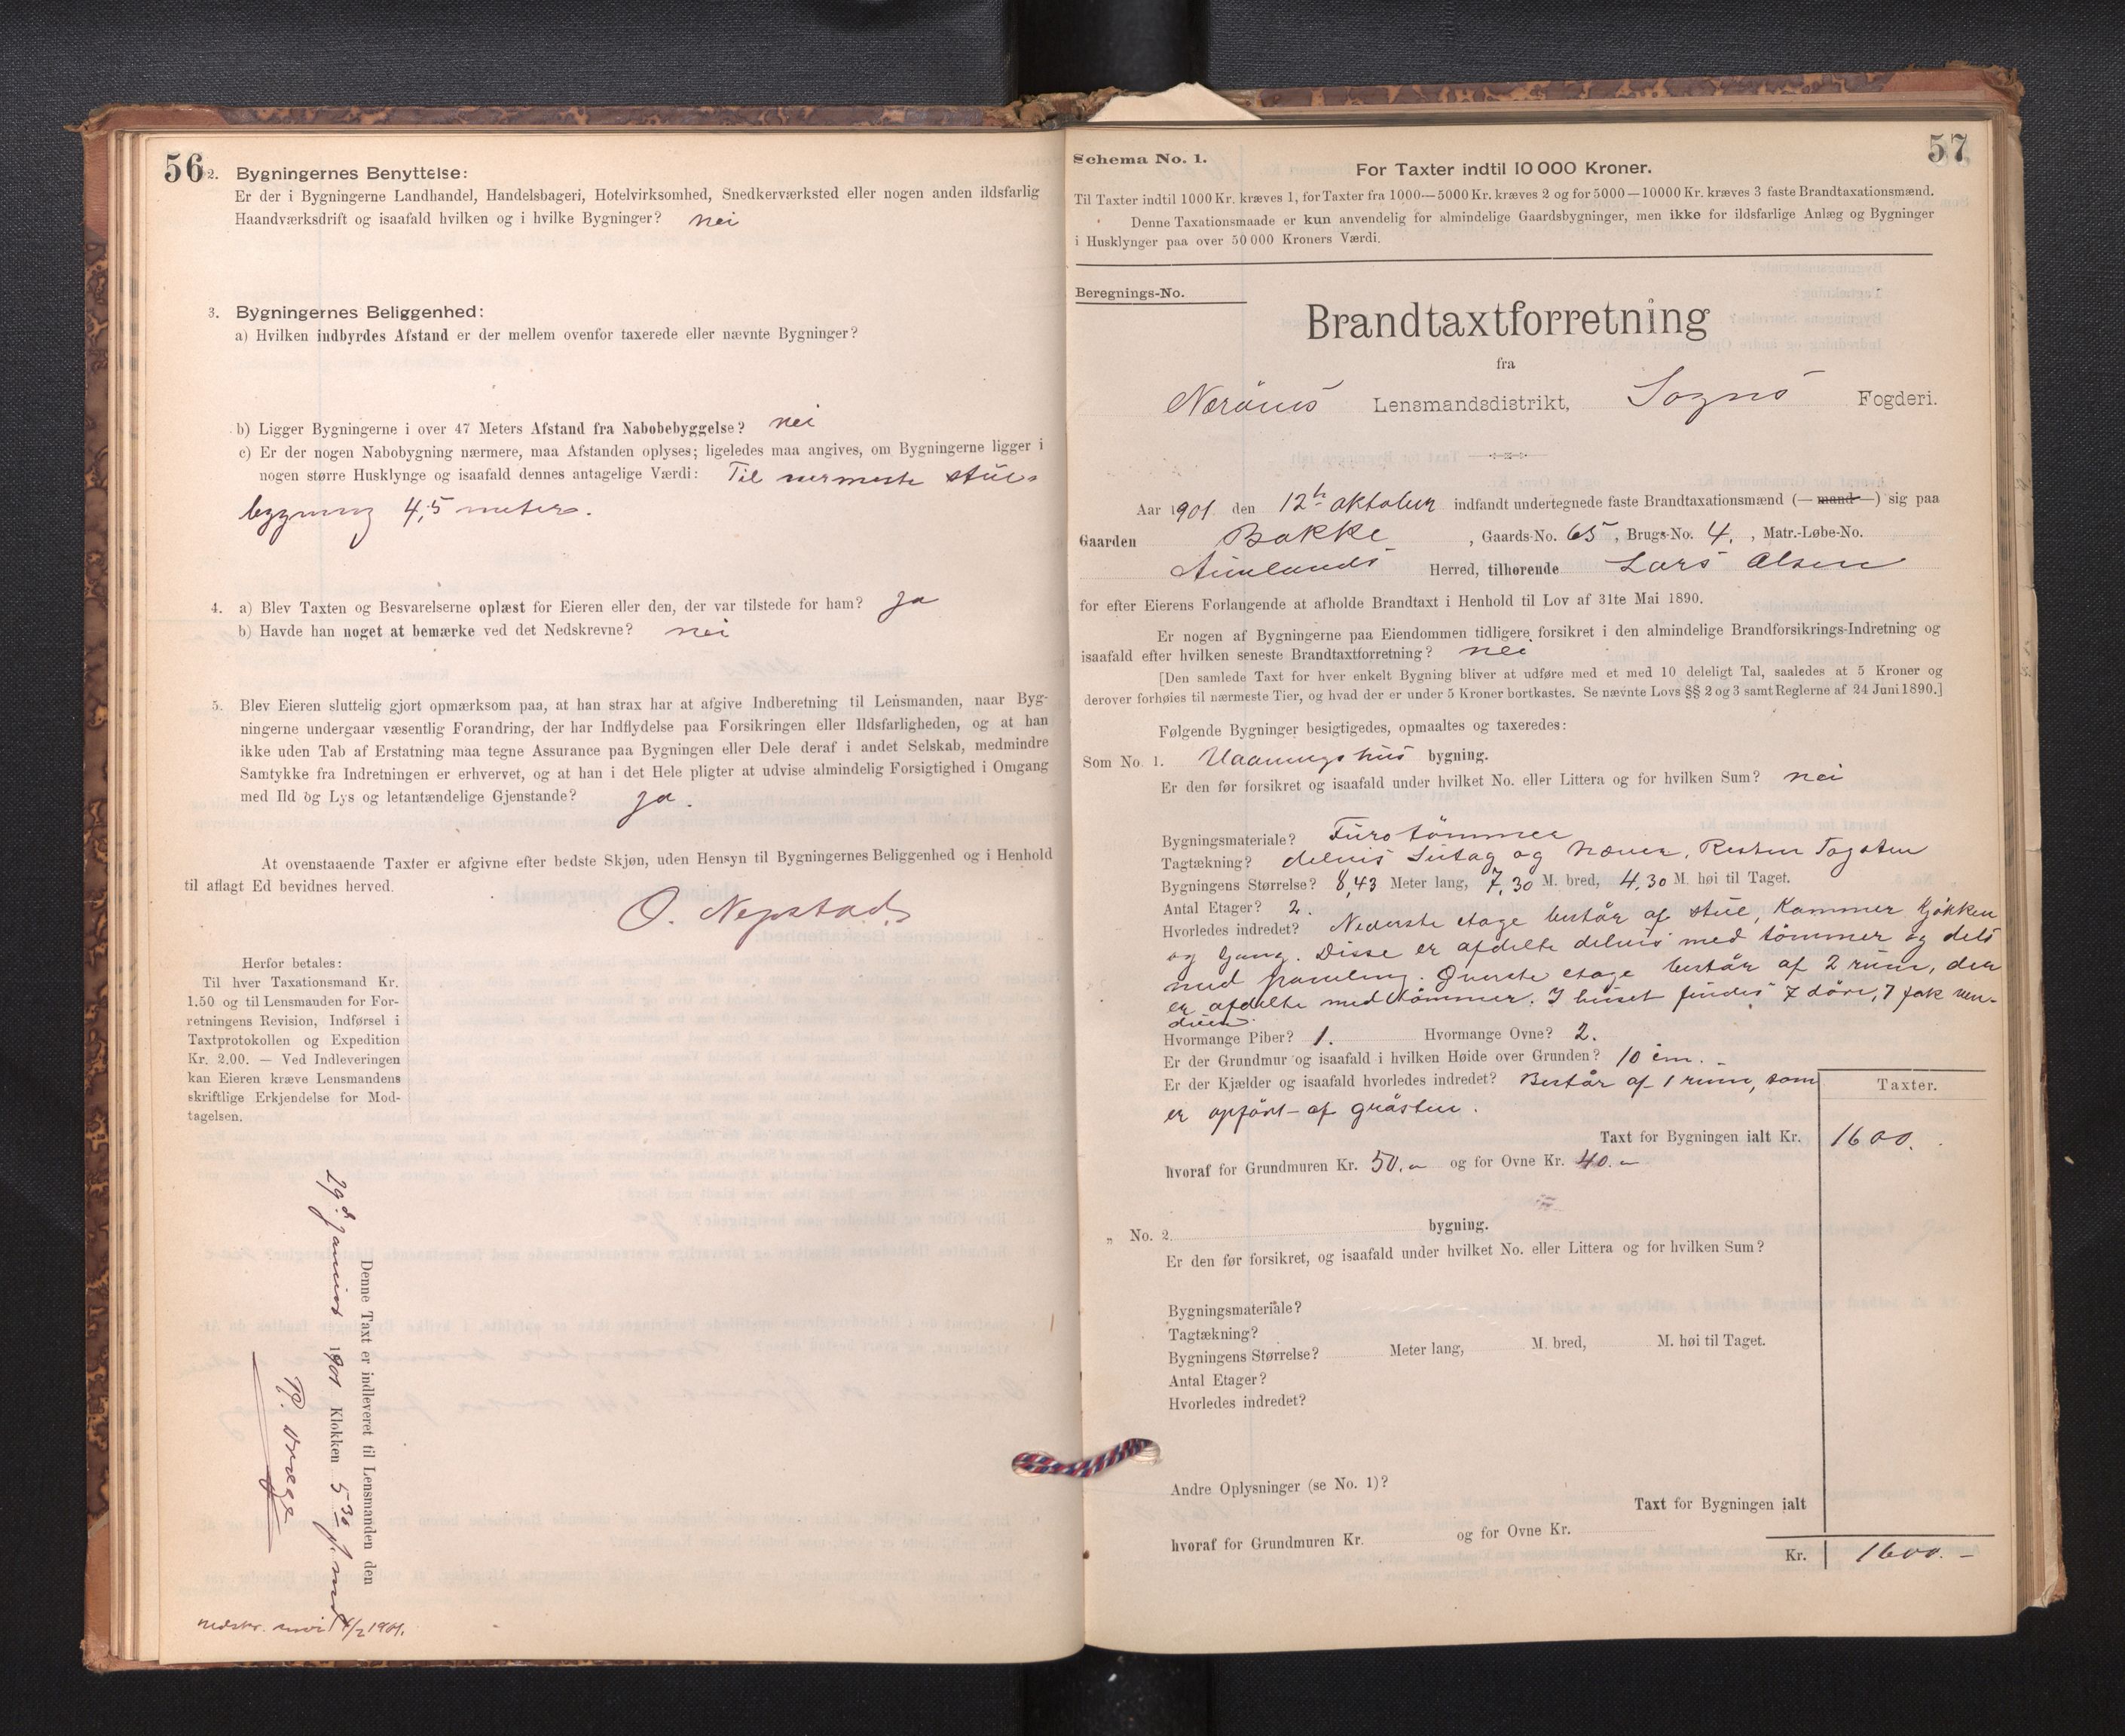 56
2. Bygningernes Benyttelse:
Er der i Bygningerne Landhandel, Handelsbageri, Hotelvirksomhed, Snedkerværksted eller nogen anden ildsfarlig
Haandværksdrift og isaafald hvilken og i hvilke Bygninger? nei
3. Bygningernes Beliggenhed:
a) Hvilken indbyrdes Afstand er der mellem ovenfor taxerede eller nævnte Bygninger?
b) Ligger Bygningerne i over 47 Meters Afstand fra Nabobebyggelse? nei
c) Er der nogen Nabobygning nærmere, maa Afstanden oplyses; ligeledes maa angives, om Bygningerne ligger i
nogen større Husklynge og isaafald dennes antagelige Værdi: Til nærmeste stue-
bygning 4,5 meter.
4. a) Blev Taxten og Besvarelserne oplæst for Eieren eller den, der var tilstede for ham? ja
b) Havde han noget at bemærke ved det Nedskrevne? nei
5. Blev Eieren sluttelig gjort opmærksom paa, at han strax har at afgive Indberetning til Lensmanden, naar Byg-
ningerne undergaar væsentlig Forandring, der har Indflydelse paa Forsikringen eller Ildsfarligheden, og at han
ikke uden Tab af Erstatning maa tegne Assurance paa Bygningen eller Dele deraf i andet Selskab, medmindre
Samtykke fra Indretningen er erhvervet, og at han i det Hele pligter at udvise almindelig Forsigtighed i Omgang
med Ild og Lys og letantændelige Gjenstande? ja.
At ovenstaaende Taxter er afgivne efter bedste Skjøn, uden Hensyn til Bygningernes Beliggenhed og i Henhold
til aflagt Ed bevidnes herved.
O. Nepstad
Herfor betales:
Til hver Taxationsmand Kr.
1.50 og til Lensmanden for For-
retningens Revision, Indførsel i
Taxtprotokollen og Expedition
Kr. 2.00. — Ved Indleveringen
kan Eieren kræve Lensmandens
skriftlige Erkjendelse for Mod-
tagelsen.
Denne Taxt er indleveret til Lensmanden den
29de Januar 1901 Klokken 5 30
1901.
57
Schema No. 1.
For Taxter indtil 10 000 Kroner.
Til Taxter indtil 1000 Kr. kræves 1, for Taxter fra 1000—5000 Kr. kræves 2 og for 5000—10000 Kr. kræves 3 faste Brandtaxationsmænd.
Denne Taxationsmaade er kun anvendelig for almindelige Gaardsbygninger, men ikke for ildsfarlige Anlæg og Bygninger
i Husklynger paa over 50 000 Kroners Værdi.
Beregnings-No.
Brandtaxtforretning
fra
Nærøens Lensmandsdistrikt, Sogns Fogderi.
Aar 1901 den 12te oktober indfandt undertegnede faste Brandtaxationsmænd (— mand —) sig paa
Gaarden Bakke, Gaards-No. 65, Brugs-No. 4., Matr.-Løbe-No.
Aurlands Herred, tilhørende Lars Olsen
for efter Eierens Forlangende at afholde Brandtaxt i Henhold til Lov af 31te Mai 1890.
Er nogen af Bygningerne paa Eiendommen tidligere forsikret i den almindelige Brandforsikrings-Indretning og
isaafald efter hvilken seneste Brandtaxtforretning? nei
[Den samlede Taxt for hver enkelt Bygning bliver at udføre med et med 10 deleligt Tal, saaledes at 5 Kroner og
derover forhøies til nærmeste Tier, og hvad der er under 5 Kroner bortkastes. Se nævnte Lovs §§ 2 og 3 samt Reglerne af 24 Juni 1890.]
Følgende Bygninger besigtigedes, opmaaltes og taxeredes:
Som No. 1. Vaaningshus bygning.
Er den før forsikret og isaafald under hvilket No. eller Littera og for hvilken Sum? nei
Bygningsmateriale? Furotømmer
Tagtækning? delvis Sutag og Næver, Resten Tagsten
Bygningens Størrelse? 8,43 Meter lang, 7,30 M. bred, 4,30 M. høi til Taget.
Antal Etager? 2.
Hvorledes indredet? Nederste etage består af stue, Kammer Kjøkken
og Gang. Disse er afdelte delvis med tømmer og dels
med paneling. Øverste etage består af 2 rum, der
er afdelte med tømmer. I huset findes 7 døre, 7 fak ven-
duer.
Hvormange Piber? 1. Hvormange Ovne? 2.
Er der Grundmur og isaafald i hvilken Høide over Grunden? 10 cm.
Er der Kjælder og isaafald hvorledes indredet? Består af 1 rum, som
er opført af gråsten.
Taxter.
Taxt for Bygningen ialt Kr. 1600.
hvoraf for Grundmuren Kr. 50.- og for Ovne Kr. 40.-
„ No. 2. bygning.
Er den før forsikret, og isaafald under hvilket No. eller Littera og for hvilken Sum?
Bygningsmateriale?
Tagtækning?
Bygningens Størrelse? Meter lang, M. bred, M. høi til Taget.
Antal Etager?
Hvorledes indredet?
Andre Oplysninger (se No. 1)?
Taxt for Bygningen ialt
hvoraf for Grundmuren Kr. og for Ovne Kr.
Kr. 1600.-